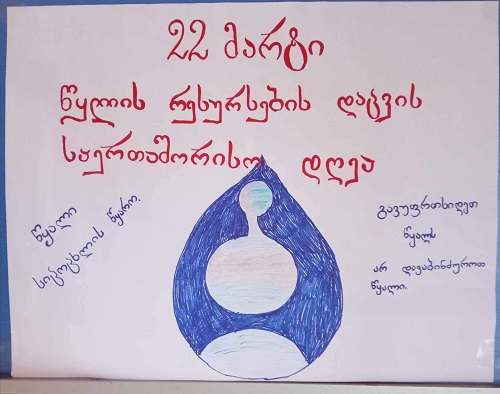 22 მარტი
წყლის რესურსების დაცვის
საერთაშორისო დღეა
წყალი
სიცოცხლის წყარო.
გავუფრთხილდეთ
წყალს
არ დავაბინძუროთ
წყალი.